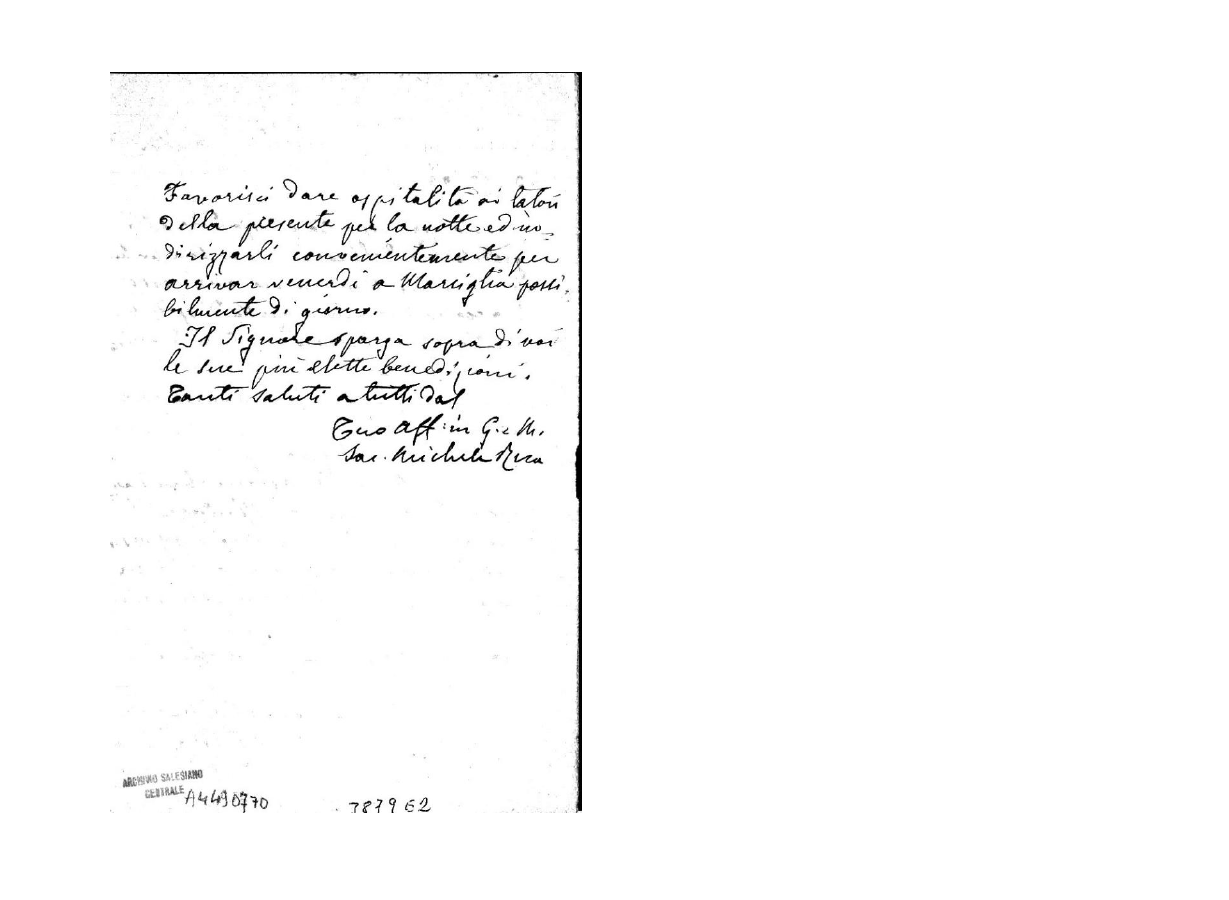 Favorisci dare ospitalità ai latori
della presente per la notte ed in-
dirizzarli convenientemente per
arrivar venerdì a Marsiglia possi-
bilmente di giorno.
Il Signore sparga sopra di voi
le sue più elette benedizioni.
Tanti saluti a tutti dal
Tuo Aff. in G. e M.
Sac. Michele Rua
ARCHIVIO SALESIANO
CENTRALE
A4490770
3879E2